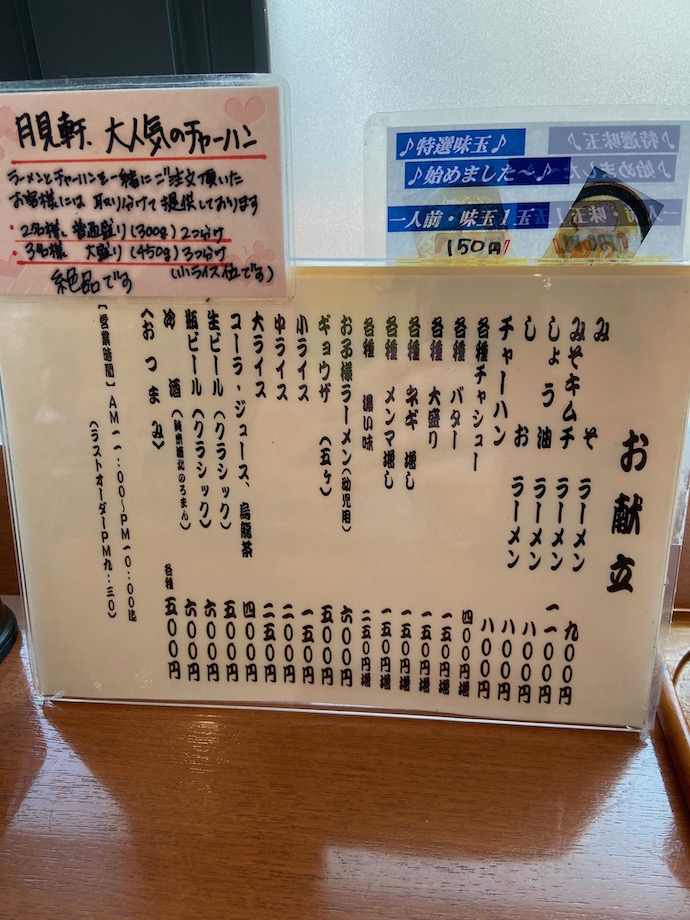 月見軒、大人気のチャーハン
ラーメンとチャーハンを一緒にご注文頂いた
お客様には取り分けて提供しております
・2名様、普通盛り(300g)2つ分け
・3名様 大盛り(450g)3つ分け
絶品です (小ライス位です)
♪特選味玉♪
♪始めました～♪
一人前・味玉1玉
150円
お献立
みそ ラーメン 九〇〇円
みそキムチ ラーメン 一一〇〇円
しょう油 ラーメン 八〇〇円
しお ラーメン 八〇〇円
チャーハン 八〇〇円
各種チャシュー 四〇〇円増
各種 バター 一五〇円増
各種 大盛り 一五〇円増
各種 ネギ増し 一五〇円増
各種 メンマ増し 一五〇円増
各種 濃い味 二五〇円増
お子様ラーメン(幼児用) 六〇〇円
ギョウザ (五ヶ) 五〇〇円
小ライス 一五〇円
中ライス 二〇〇円
大ライス 二五〇円
コーラ・ジュース、烏龍茶 四〇〇円
生ビール (クラシック) 五〇〇円
瓶ビール (クラシック) 六〇〇円
冷 酒 (純米道北のろまん) 六〇〇円
〈おつまみ〉 各種 五〇〇円
【営業時間】AM一一:〇〇～PM一〇:〇〇迄
(ラストオーダーPM九:三〇)